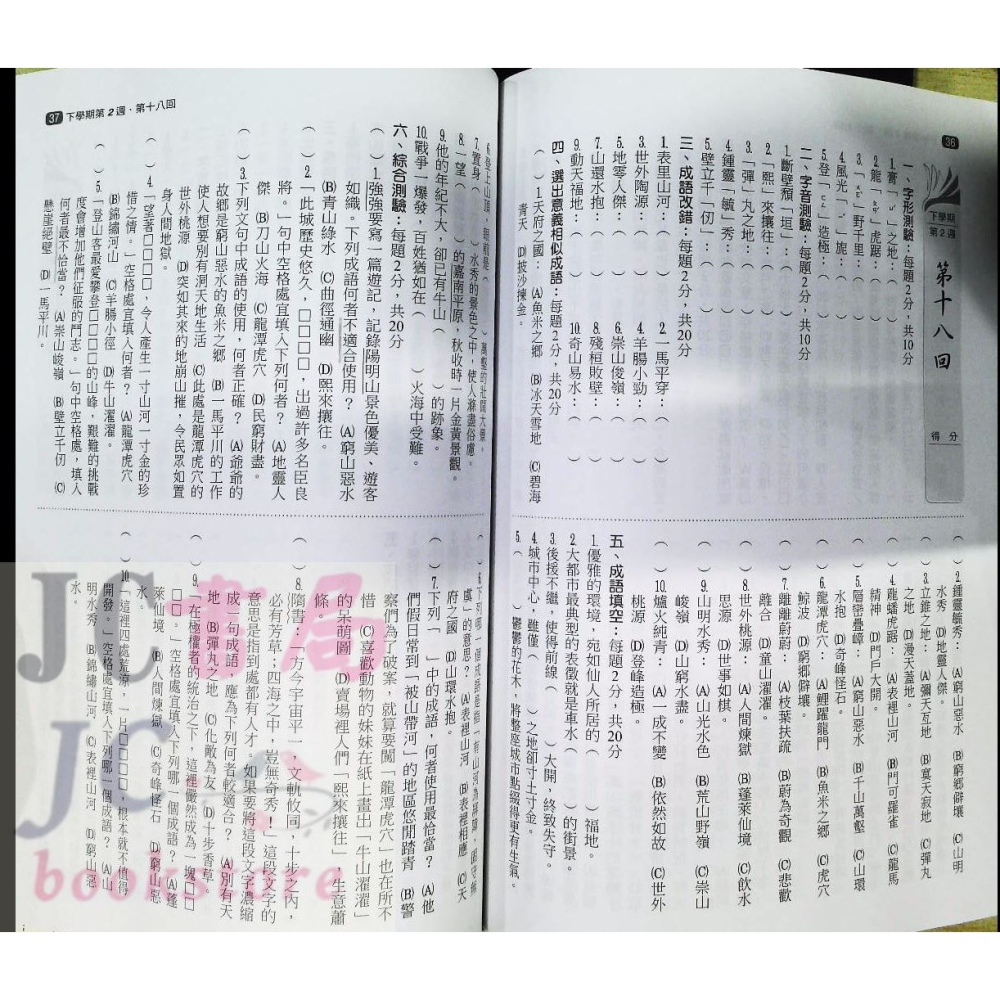 36
下學期
第2週
第十八回
得分
一、字形測驗：每題2分，共10分
二、字音測驗：每題2分，共10分
1.斷壁頹「垣」：（　）
2.「熙」來攘往：（　）
3.「彈」丸之地：（　）
4.鍾靈「毓」秀：（　）
5.壁立千「仞」：（　）
三、成語改錯：每題2分，共20分
1.表里山河：（　）
2.一馬平穿：（　）
3.世外陶源：（　）
4.羊腸小勁：（　）
5.地零人傑：（　）
6.崇山俊嶺：（　）
7.山環水抱：（　）
8.殘桓敗壁：（　）
9.動天福地：（　）
10.奇山易水：（　）
四、選出意義相似成語：每題2分，共20分
（　）1.天府之國：　(A)魚米之鄉　(B)冰天雪地　(C)碧海
青天　(D)披沙揀金。
（　）2.鍾靈毓秀：　(A)窮山惡水　(B)窮鄉僻壤　(C)山明
水秀　(D)地靈人傑。
（　）3.立錐之地：　(A)彌天亙地　(B)寞天寂地　(C)彈丸
之地　(D)漫天蓋地。
（　）4.龍蟠虎踞：　(A)表裡山河　(B)門可羅雀　(C)龍馬
精神　(D)門戶大開。
（　）5.層巒疊嶂：　(A)窮山惡水　(B)千山萬壑　(C)山環
水抱　(D)奇峰怪石。
（　）6.龍潭虎穴：　(A)鯉躍龍門　(B)魚米之鄉　(C)虎穴
鯨波　(D)窮鄉僻壤。
（　）7.離離蔚蔚：　(A)枝葉扶疏　(B)蔚為奇觀　(C)悲歡
離合　(D)童山濯濯。
（　）8.世外桃源：　(A)人間煉獄　(B)蓬萊仙境　(C)飲水
思源　(D)世事如棋。
（　）9.山明水秀：　(A)山光水色　(B)荒山野嶺　(C)崇山
峻嶺　(D)山窮水盡。
（　）10.爐火純青：　(A)一成不變　(B)依然如故　(C)世外
桃源　(D)登峰造極。
五、成語填空：每題2分，共20分
1.優雅的環境，宛如仙人所居的（　）福地。
2.大都市最典型的表徵就是車水（　）的街景。
3.後援不繼，使得前線（　）大開，終致失守。
4.城市中心，雖僅（　）之地卻寸土寸金。
5.（　）鬱鬱的花木，將整座城市點綴得更有生氣。
37 下學期第2週‧第十八回
7.置身（　）水秀的景色之中，使人滌盡俗慮。
8.一望（　）的嘉南平原，秋收時一片金黃景觀。
9.他的年紀不大，卻已有牛山（　）的跡象。
10.戰爭一爆發，百姓猶如在（　）火海中受難。
六、綜合測驗：每題2分，共20分
（　）1.強強要寫一篇遊記，記錄陽明山景色優美、遊客
如織。下列成語何者不適合使用？　(A)窮山惡水
(B)青山綠水　(C)曲徑通幽　(D)熙來攘往。
（　）2.「此城歷史悠久，□□□□，出過許多名臣良
將。」句中空格處宜填入下列何者？　(A)地靈人
傑　(B)刀山火海　(C)龍潭虎穴　(D)民窮財盡。
（　）3.下列文句中成語的使用，何者正確？　(A)爺爺的
故鄉是窮山惡水的魚米之鄉　(B)一馬平川的工作
使人想要別有洞天地生活　(C)此處是龍潭虎穴的
世外桃源　(D)突如其來的地崩山摧，令民眾如置
身人間地獄。
（　）4.「望著□□□□，令人產生一寸山河一寸金的珍
惜之情。」空格處宜填入何者？　(A)龍潭虎穴
(B)錦繡河山　(C)羊腸小徑　(D)牛山濯濯。
（　）5.「登山客最愛攀登□□□□的山峰，艱難的挑戰
度會增加他們征服的鬥志。」句中空格處，填入
何者最不恰當？　(A)崇山峻嶺　(B)壁立千仞　(C)
懸崖絕壁　(D)一馬平川。
府之國　(D)山環水抱。
（　）7.下列「　」中的成語，何者使用最恰當？　(A)他
們假日常到「被山帶河」的地區悠閒踏青　(B)警
察們為了破案，就算要闖「龍潭虎穴」也在所不
惜　(C)喜歡動物的妹妹在紙上畫出「牛山濯濯」
的呆萌圖　(D)賣場裡人們「熙來攘往」，生意蕭
條。
（　）8.隋書：「方今宇宙平一，文軌攸同，十步之內，
必有芳草；四海之中，豈無奇秀！」這段文字的
意思是指到處都有人才，如果要將這段文字濃縮
成一句成語，應為下列何者較適合？　(A)別有天
地　(B)彈丸之地　(C)化敵為友　(D)十步香草
（　）9.「在極權者的統治之下，這裡儼然成為一塊□□
□□。」空格處宜填入下列哪一個成語？　(A)蓬
萊仙境　(B)人間煉獄　(C)奇峰怪石　(D)窮山惡
水。
（　）10.「這裡四處荒涼，一片□□□□，根本就不值得
開發。」空格處宜填入下列哪一個成語？　(A)山
明水秀　(B)錦繡山河　(C)表裡山河　(D)窮山惡
水。
JC書局
JC
bookstore